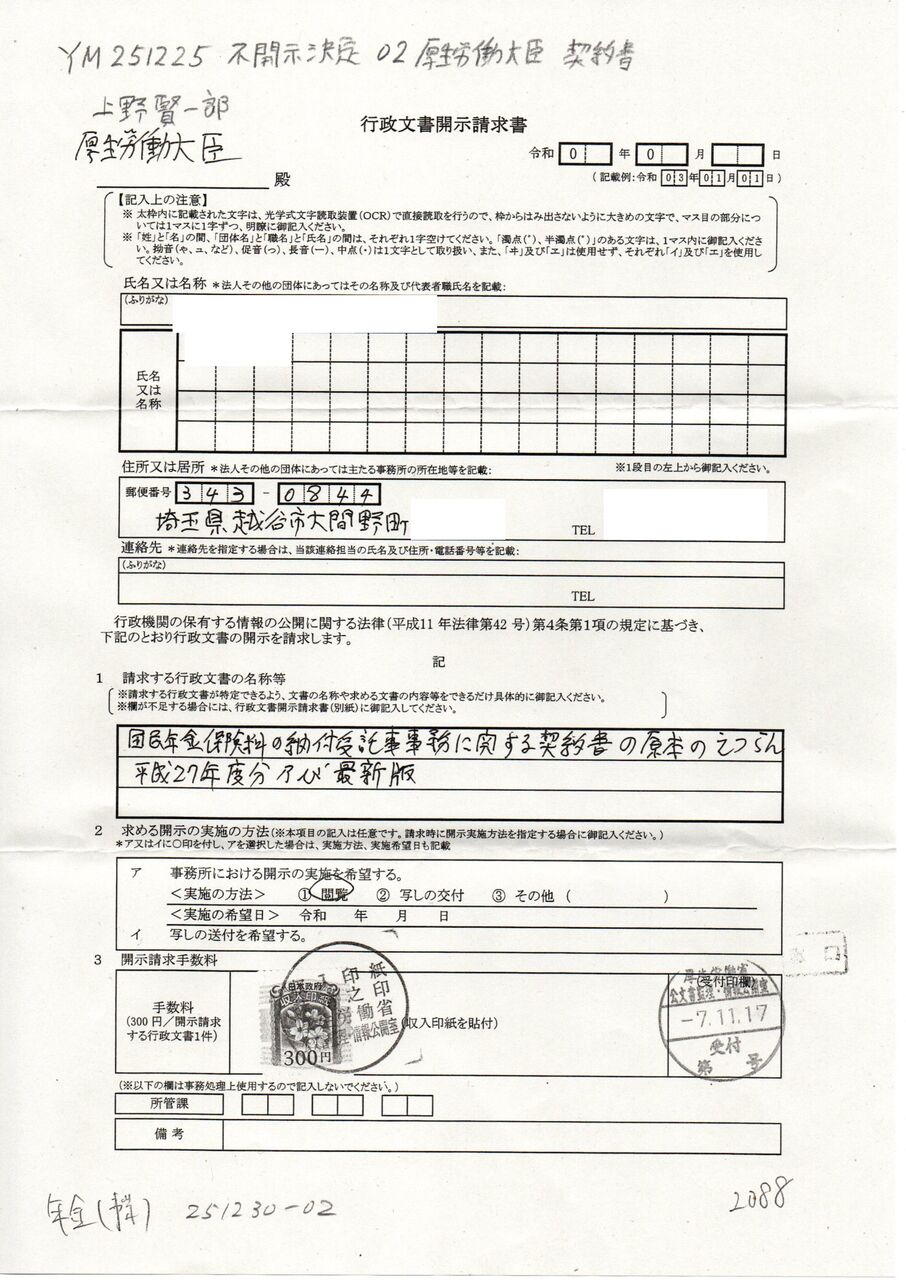 YM251225 不開示決定 02厚生労働大臣 契約書
上野賢一郎
厚生労働大臣
殿
行政文書開示請求書
令和 0 年 0 月 日
(記載例:令和 03年01月01日)
【記入上の注意】
※ 太枠内に記載された文字は、光学式文字読取装置(OCR)で直接読取を行うので、枠からはみ出さないように大きめの文字で、マス目の部分につ
いては1マスに1字ずつ、明瞭に御記入ください。
※「姓」と「名」の間、「団体名」と「職名」と「氏名」の間は、それぞれ1字空けてください。「濁点(゛)、半濁点(゜)」のある文字は、1マス内に御記入くださ
い。拗音(ゃ、ュ、など)、促音(っ)、長音(ー)、中点(・)は1文字として取り扱い、また、「ヰ」及び「ヱ」は使用せず、それぞれ「イ」及び「エ」を使用し
てください。
氏名又は名称 *法人その他の団体にあってはその名称及び代表者職氏名を記載:
(ふりがな)
氏名
又は
名称
住所又は居所 *法人その他の団体にあっては主たる事務所の所在地等を記載:
※1段目の左上から御記入ください。
郵便番号 343-0844
埼玉県越谷市大間野町
TEL
連絡先 *連絡先を指定する場合は、当該連絡担当の氏名及び住所・電話番号等を記載:
(ふりがな)
TEL
行政機関の保有する情報の公開に関する法律(平成11年法律第42号)第4条第1項の規定に基づき、
下記のとおり行政文書の開示を請求します。
記
1 請求する行政文書の名称等
※請求する行政文書が特定できるよう、文書の名称や求める文書の内容等をできるだけ具体的に御記入ください。
※欄が不足する場合には、行政文書開示請求書(別紙)に御記入してください。
国民年金保険料の納付受託事事務に関する契約書の原本のえつらん
平成27年度分 及び 最新版
2 求める開示の実施の方法(※本項目の記入は任意です。請求時に開示実施方法を指定する場合に御記入ください。)
*ア又はイに○印を付し、アを選択した場合は、実施方法、実施希望日も記載
ア 事務所における開示の実施を希望する。
<実施の方法> ① 閲覧 ② 写しの交付 ③ その他 ( )
<実施の希望日> 令和 年 月 日
イ 写しの送付を希望する。
3 開示請求手数料
手数料
(300円/開示請求
する行政文書1件)
日本政府
300円
(収入印紙を貼付)
(受付印欄)
厚生労働省
公文書監理・情報公開室
-7.11.17
受付
第 号
(※以下の欄は事務処理上使用するので記入しないでください。)
所管課
備考
2088
251230-02